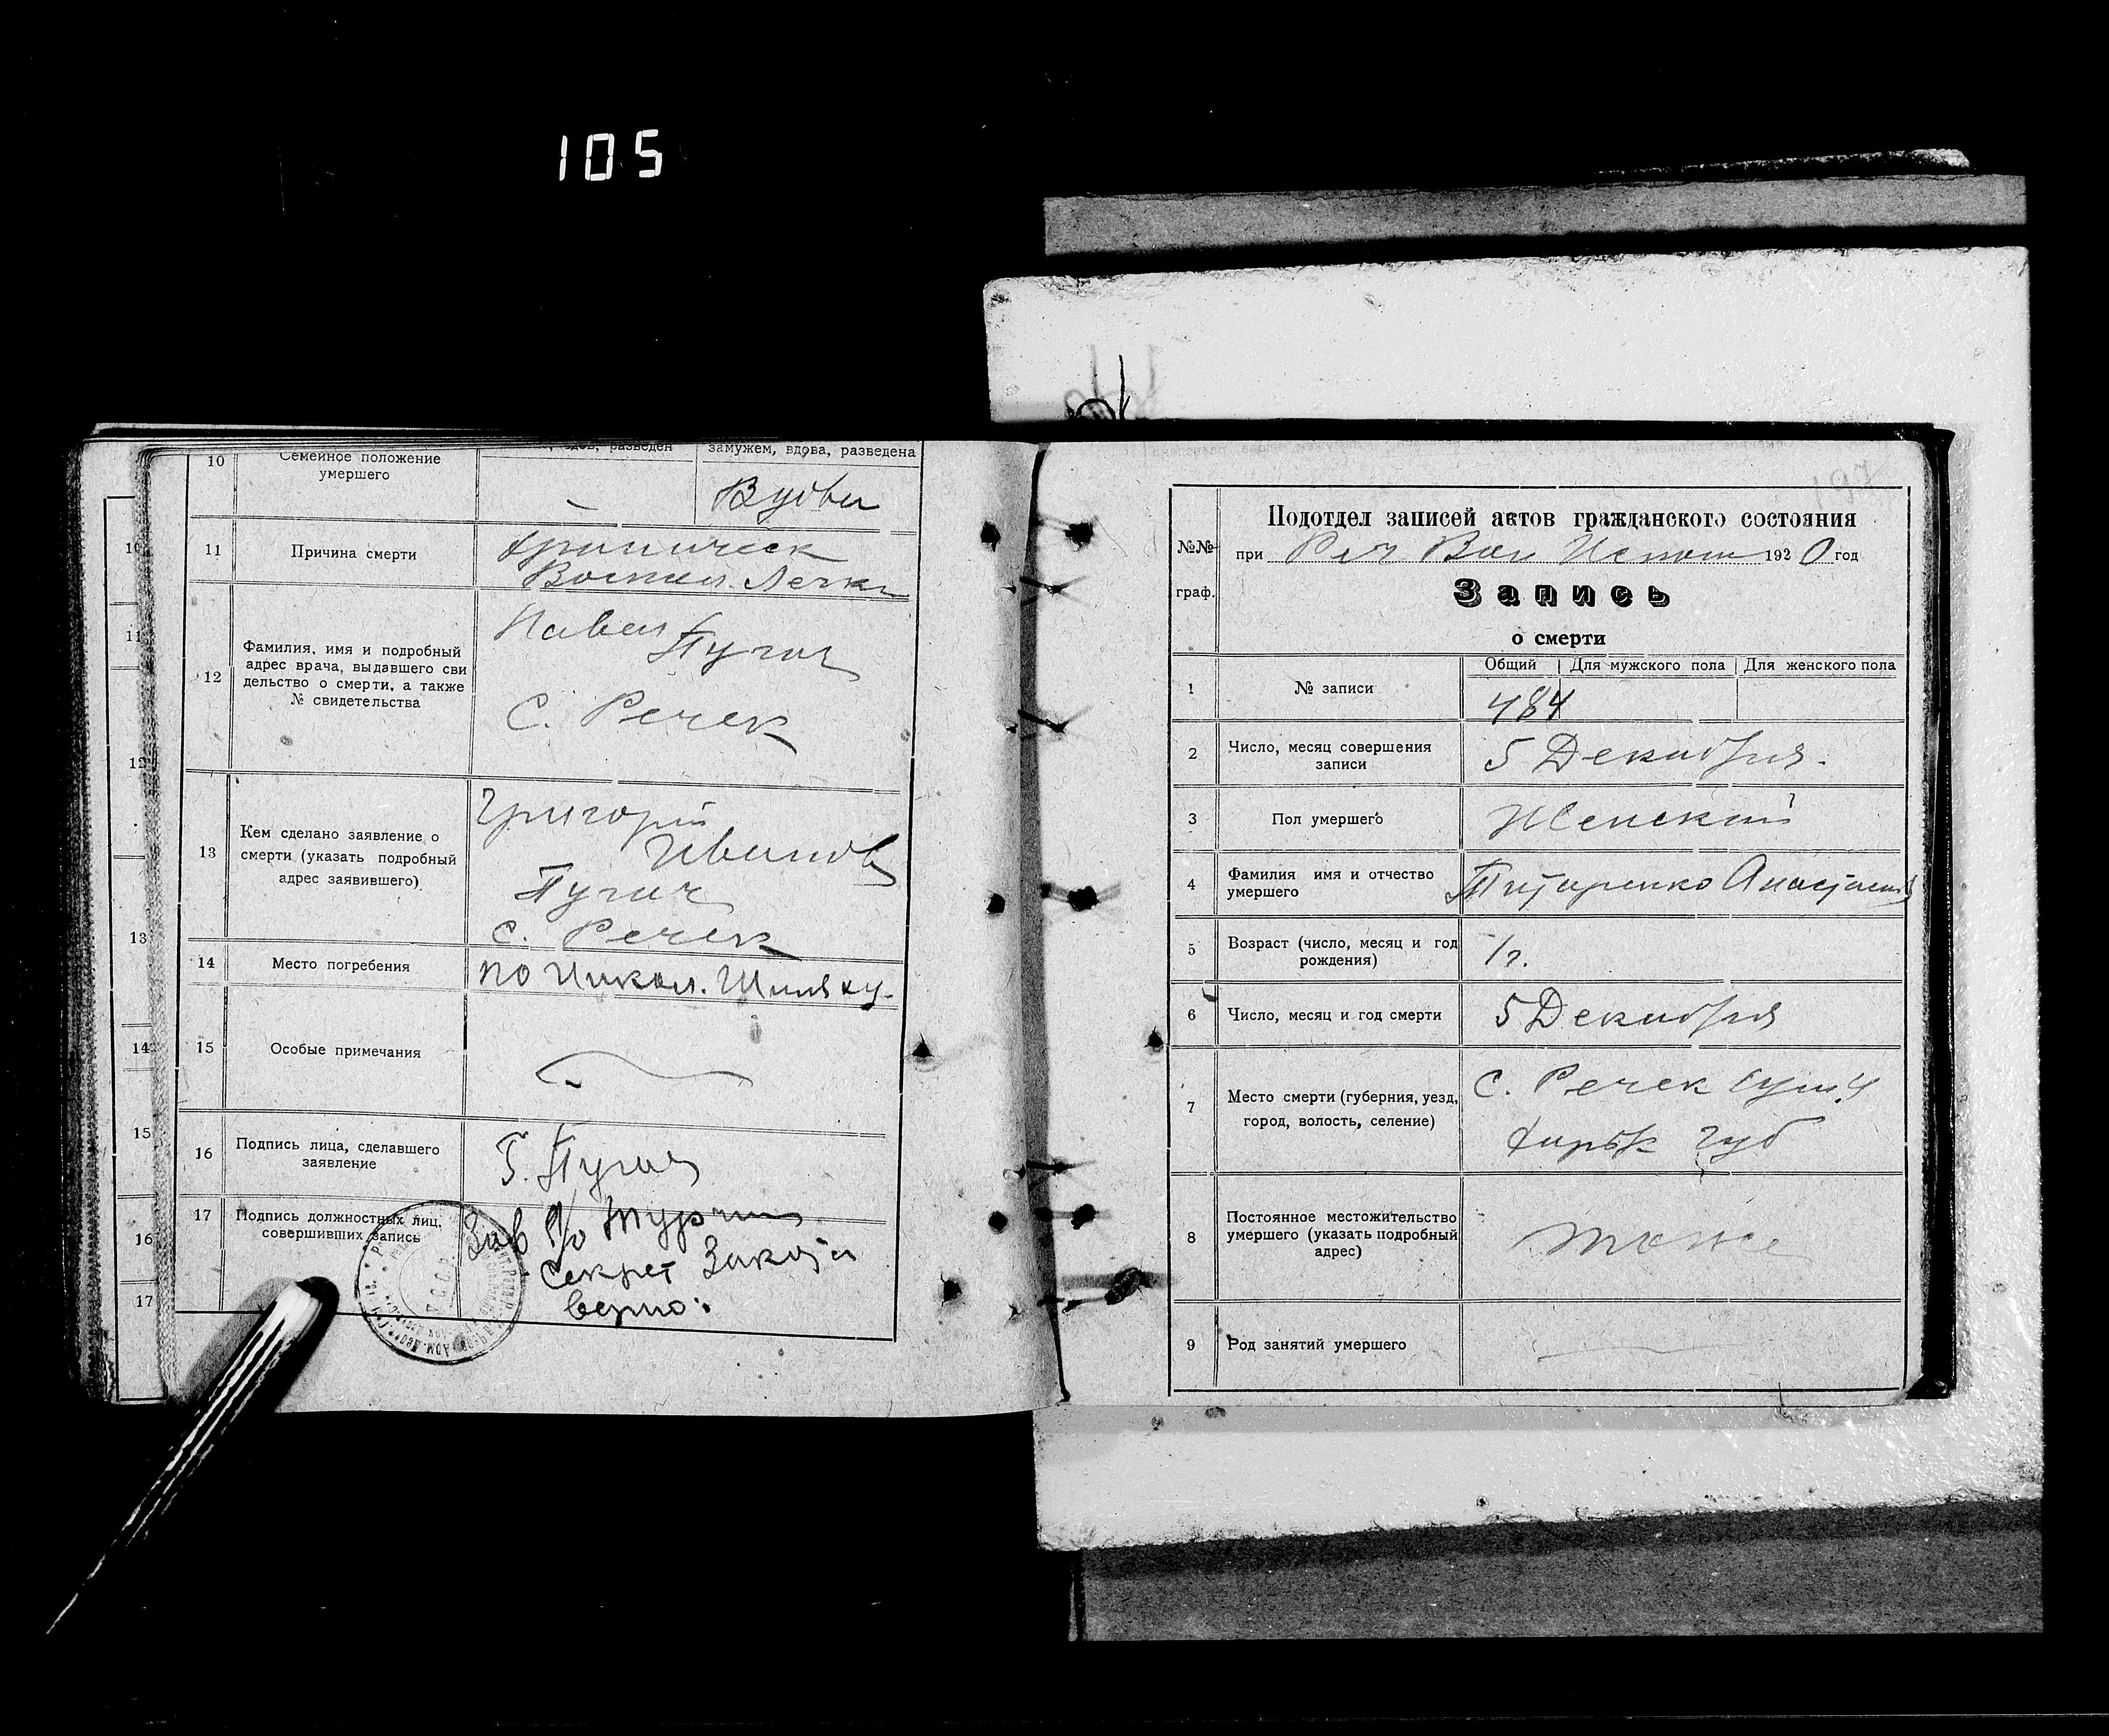 105
10
Семейное положение
умершего
вдов, разведен
замужем, вдова, разведена
Вдова
11
Причина смерти
Хроническ
Воспал. Легких
12
Фамилия, имя и подробный
адрес врача, выдавшего сви
дельство о смерти, а также
№ свидетельства
Павел
Пугач
С. Речек
13
Кем сделано заявление о
смерти (указать подробный
адрес заявившего)
Григорій
Иванов
Пугач
с. Речек
14
Место погребения
по Никол. Шляху.
15
Особые примечания
16
Подпись лица, сделавшего
заявление
Г. Пугач
17
Подпись должностных лиц,
совершивших запись
Зав п/о
Секрет
верно:
10
11
12
13
14
15
16
17
Подотдел записей актов гражданского состояния
№№
при Реч Вол Исполк 1920 год
граф.
Запись
о смерти
Общий Для мужского пола Для женского пола
1
№ записи
484
2
Число, месяц совершения
записи
5 Декабря.
3
Пол умершего
Женский
4
Фамилия имя и отчество
умершего
Титаренко Анастасия
5
Возраст (число, месяц и год
рождения)
1 г.
6
Число, месяц и год смерти
5 Декабря
7
Место смерти (губерния, уезд,
город, волость, селение)
С. Речек Сум. У
Харьк губ
8
Постоянное местожительство
умершего (указать подробный
адрес)
тоже
9
Род занятий умершего